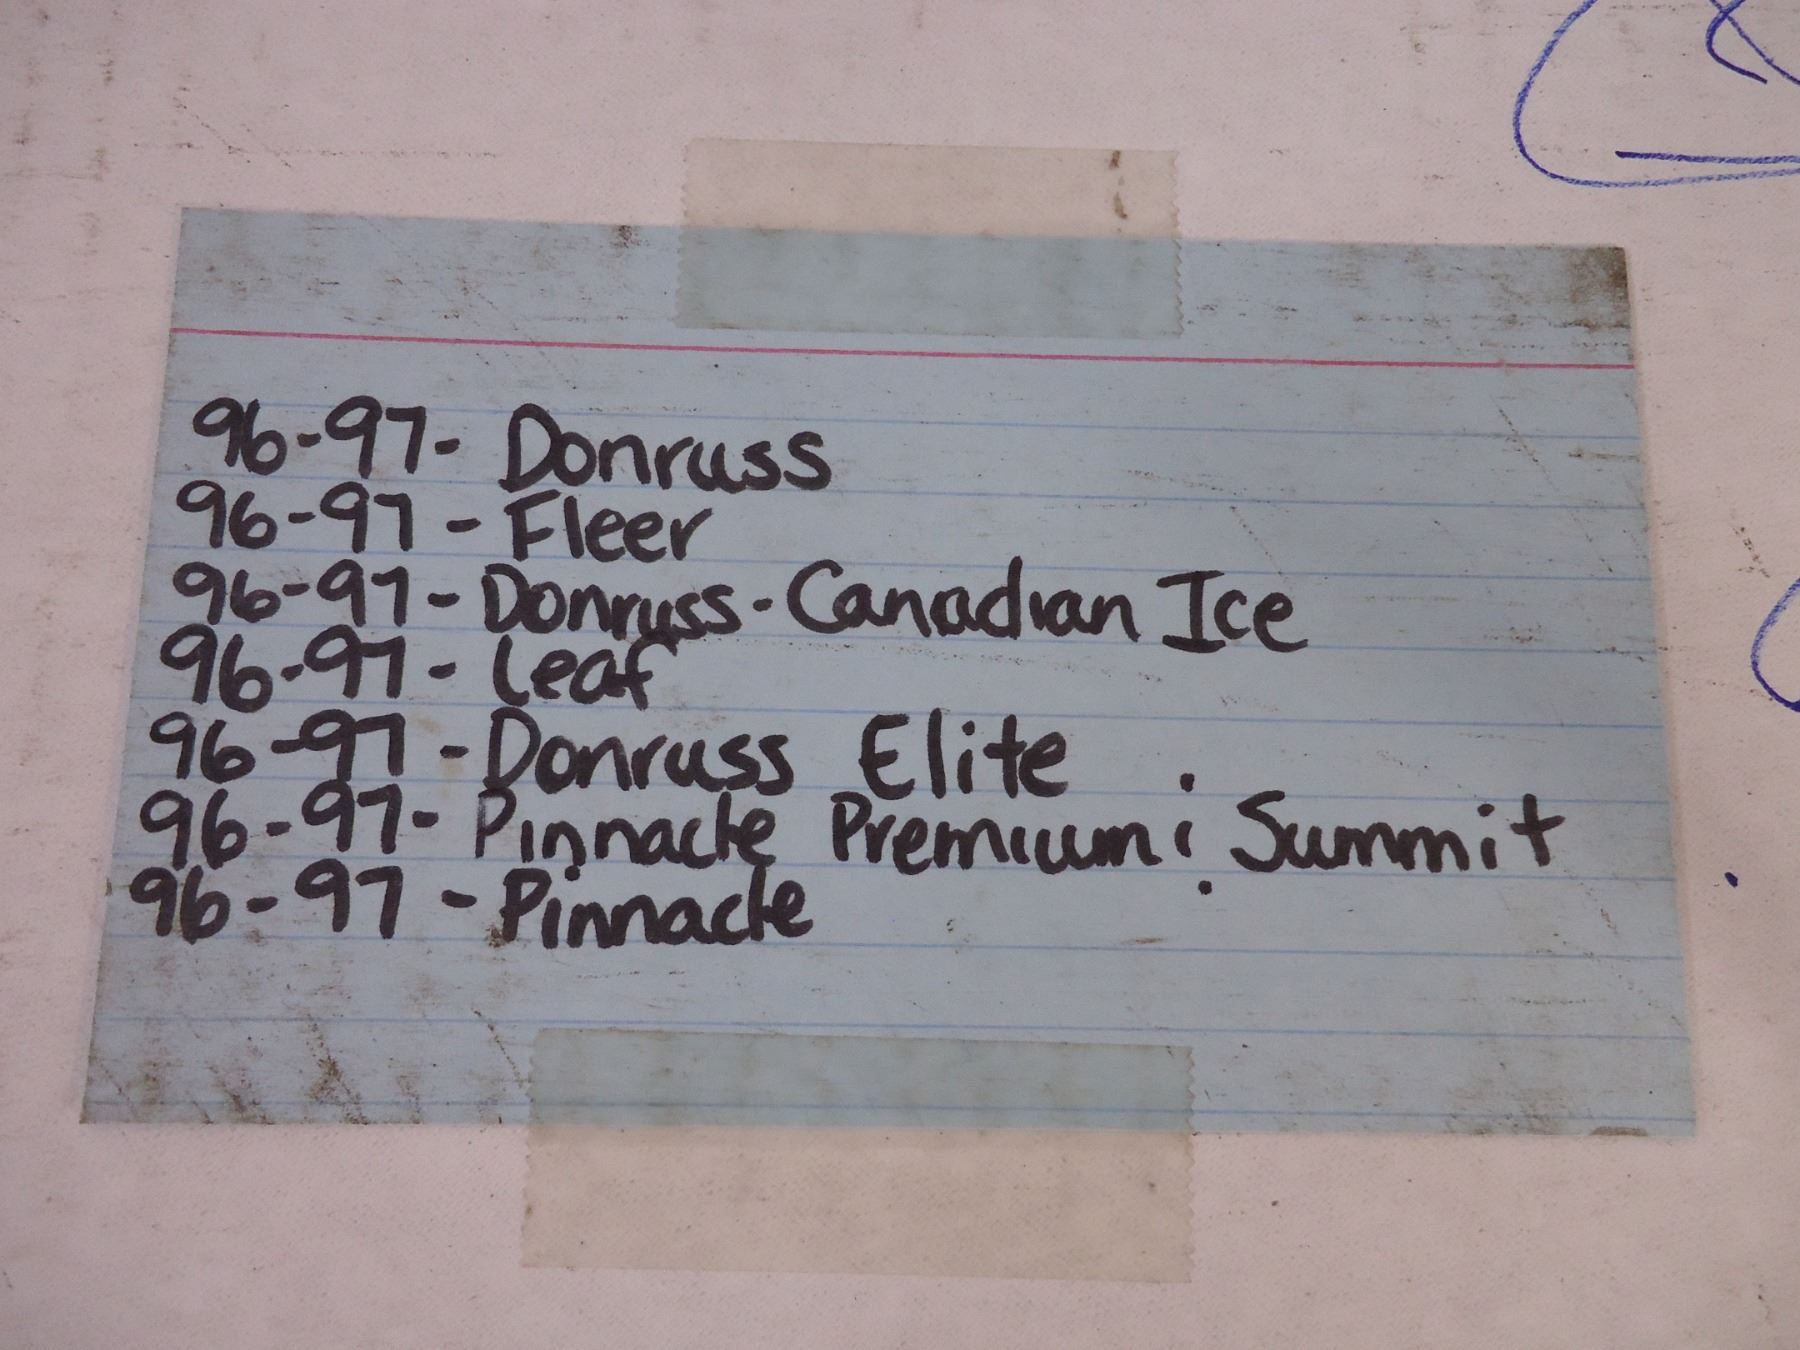 96-97- Donruss
96-97 - Fleer
96-97 - Donruss - Canadian Ice
96-97 - Leaf
96-97 - Donruss Elite
96-97- Pinnacle Premium: Summit
96-97 - Pinnacle